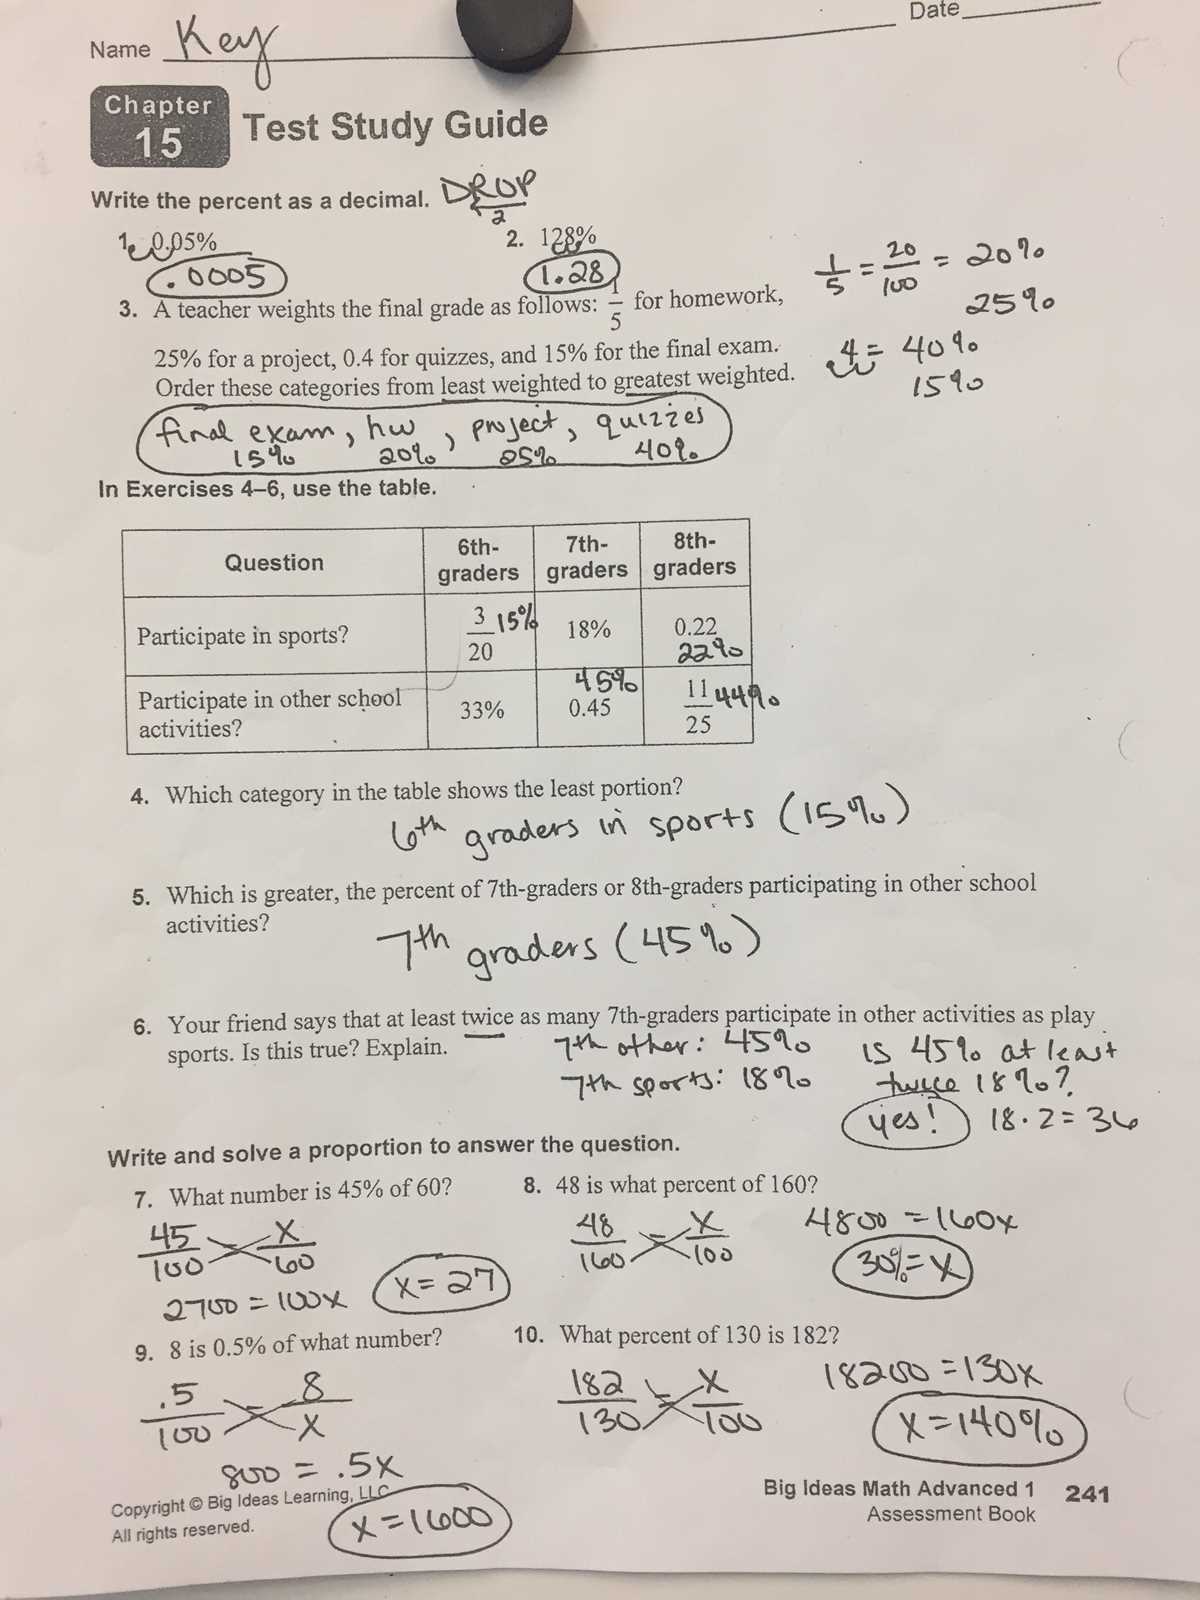 Name Key Date
Chapter 15 Test Study Guide
Write the percent as a decimal. DROP
2
1. 0.05% 2. 128%
.0005 1.28
1/5 = 20/100 = 20%
25%
3. A teacher weights the final grade as follows: 1/5 for homework,
25% for a project, 0.4 for quizzes, and 15% for the final exam. .4 = 40%
Order these categories from least weighted to greatest weighted. 15%
final exam, hw, project, quizzes
15% 20% 25% 40%
In Exercises 4–6, use the table.
Question 6th-graders 7th-graders 8th-graders
Participate in sports? 3/20 15% 18% 0.22 22%
Participate in other school activities? 33% 45% 0.45 11/25 44%
4. Which category in the table shows the least portion?
6th graders in sports (15%)
5. Which is greater, the percent of 7th-graders or 8th-graders participating in other school
activities?
7th graders (45%)
6. Your friend says that at least twice as many 7th-graders participate in other activities as play
sports. Is this true? Explain. 7th other: 45% is 45% at least
7th sports: 18% twice 18%?
yes! 18·2=36
Write and solve a proportion to answer the question.
7. What number is 45% of 60? 8. 48 is what percent of 160?
45/100 = x/60 48/160 = x/100 4800 = 160x
2700 = 100x x = 27 30% = x
9. 8 is 0.5% of what number? 10. What percent of 130 is 182?
.5/100 = 8/x 182/130 = x/100 18200 = 130x
800 = .5x x = 140%
x = 1600
Copyright © Big Ideas Learning, LLC Big Ideas Math Advanced 1 241
All rights reserved. Assessment Book